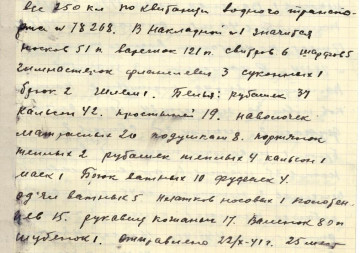 все 250 кг по квитанции водного транспо-
рта № 78268. В накладной №1 значится
носков 51 п варежек 121 п. свитров 6 шарфов 5
гимнастерок фланелевых 3 суконных 1
брюк 2 шлем 1. Белья: рубашек 37
кальсон 42. простыней 19. наволочек
матрасных 20 подушкам 8. портянок
теплых 2 рубашек теплых 4 кальсон 1
маек 1 Брюк ватных 10 фуфаек 4.
одеял ватных 5 платков носовых 1
цев 15. рукавиц кожаных 17. Валенок 80 п
шубенок 1. отправлено 22/X-41 г. 25 мест